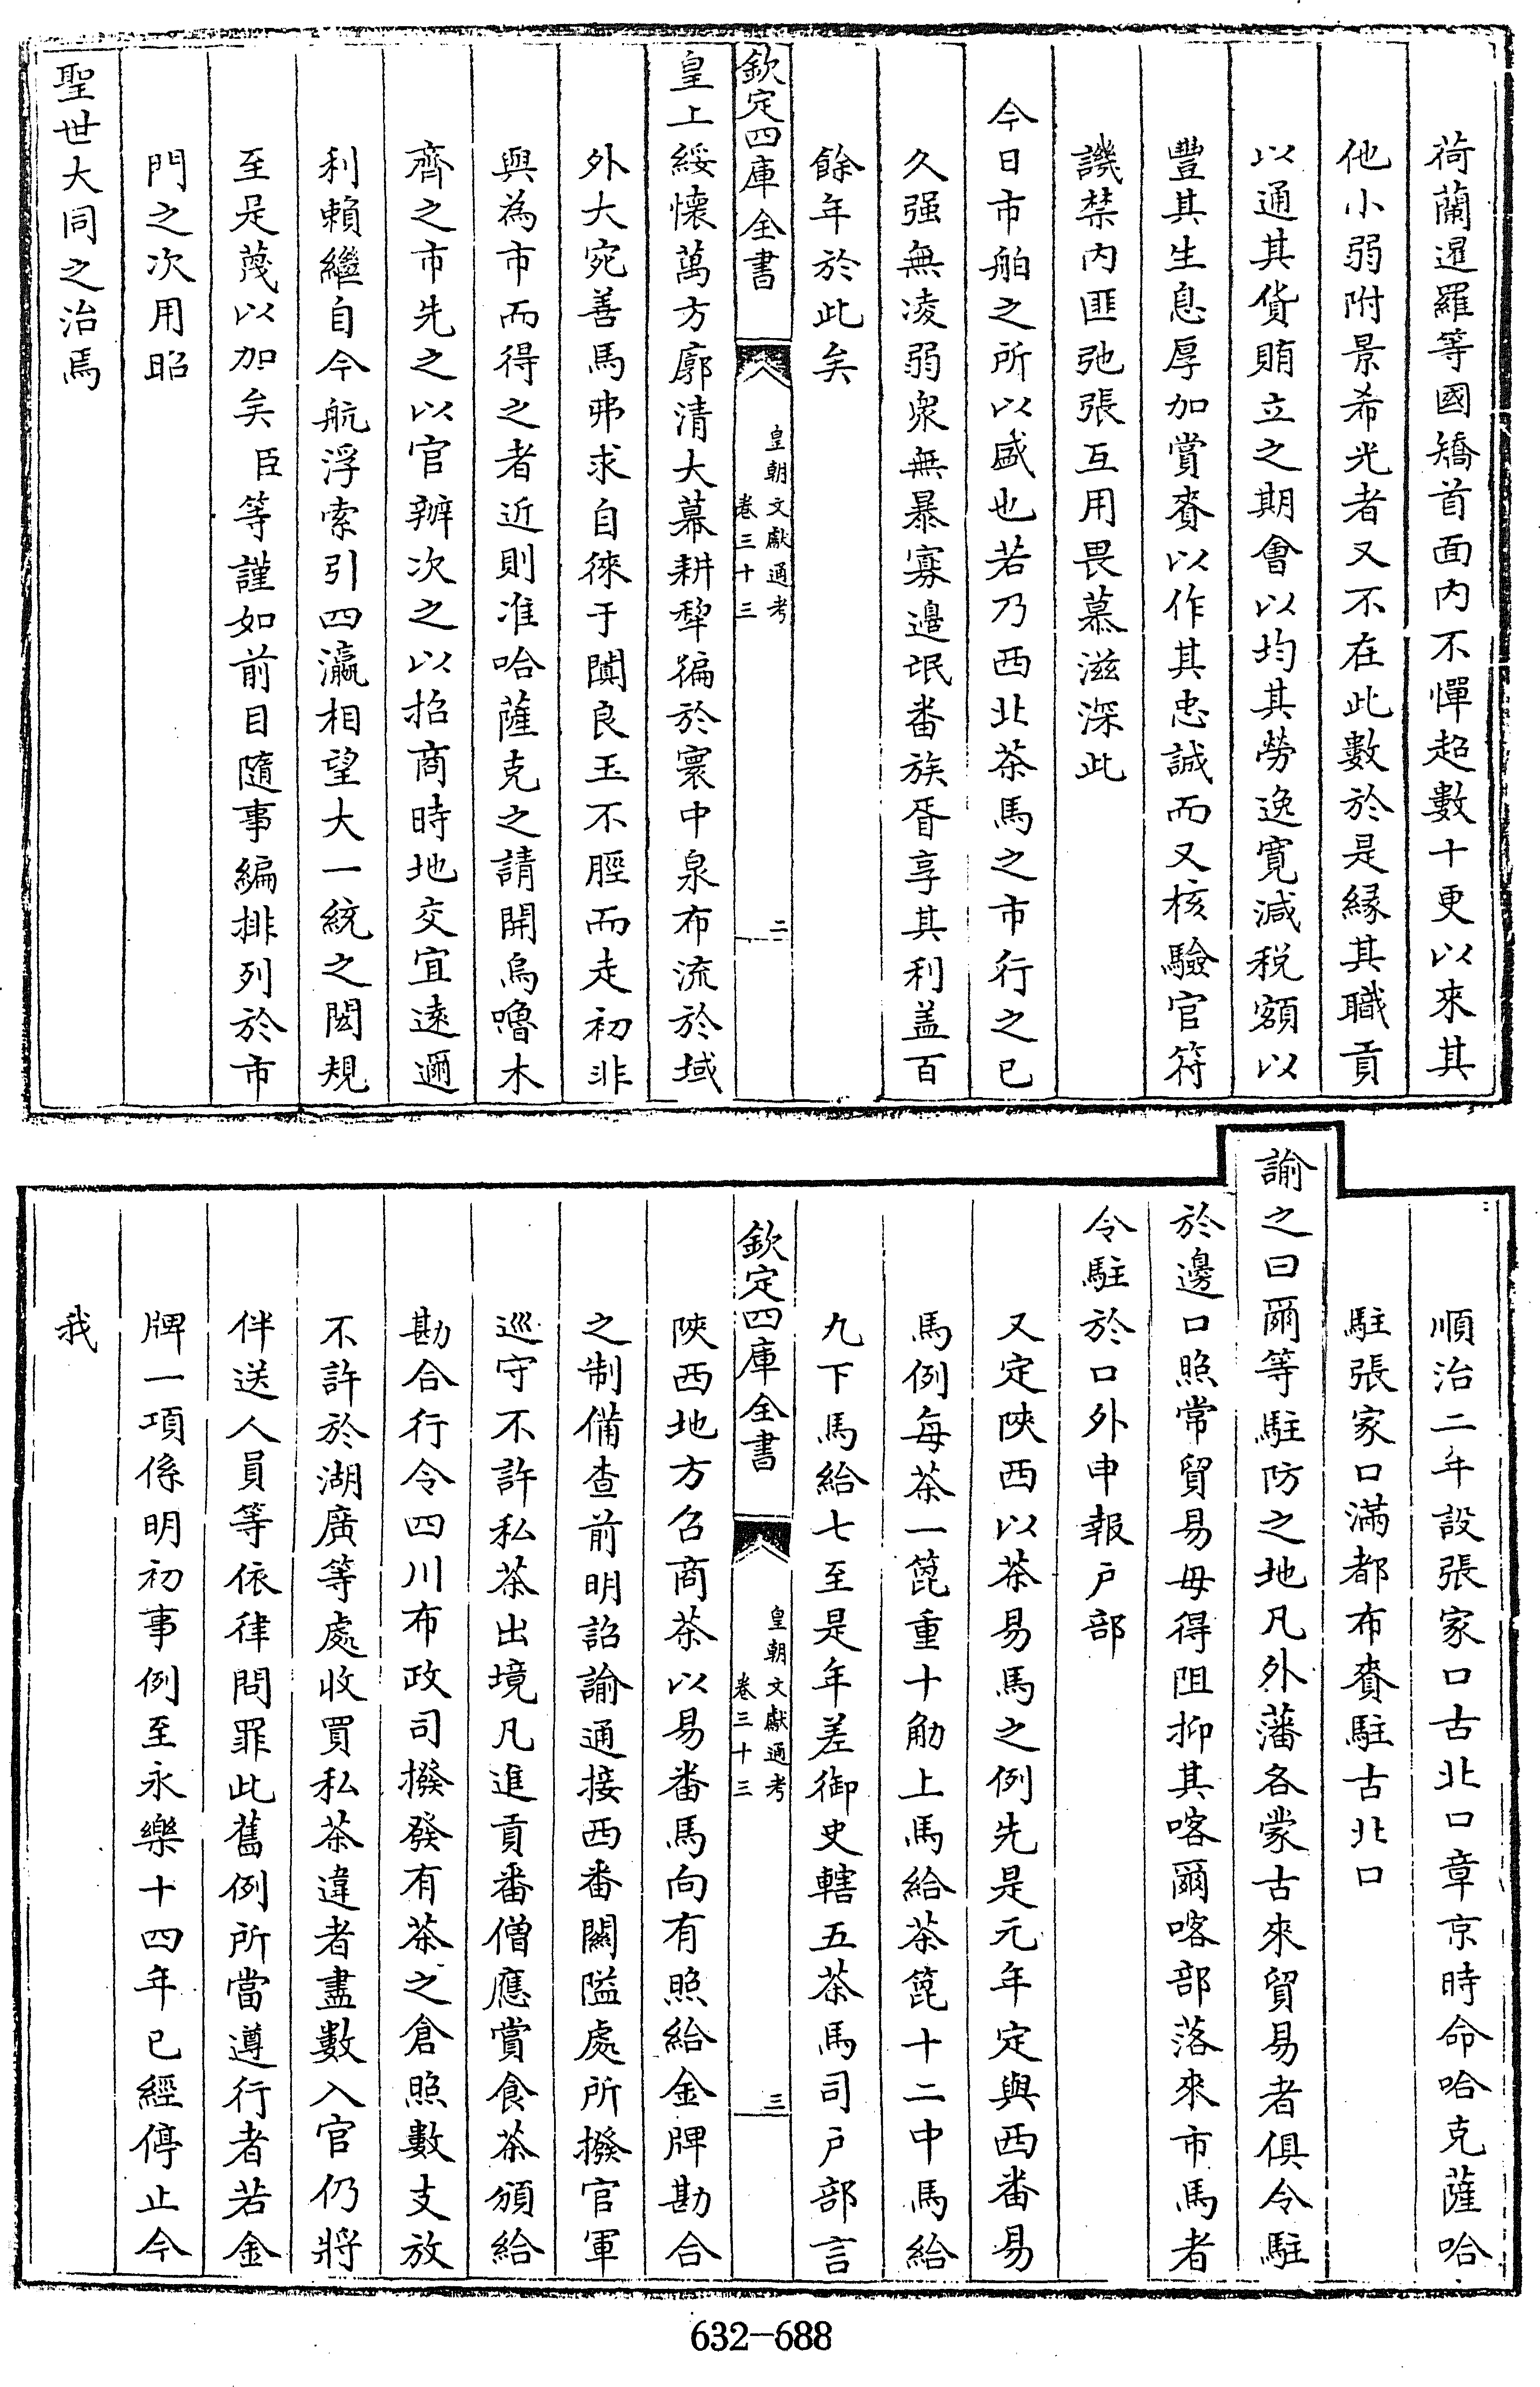 荷蘭暹羅等國矯首面内不憚超數十更以來其
他小弱附景希光者又不在此數於是縁其職貢
以通其貨賄立之期會以均其勞逸寛減税額以
豐其生息厚加賞賚以作其忠誠而又核驗官符
譏禁内匪弛張互用畏慕滋深此
今日市舶之所以盛也若乃西北茶馬之市行之已
久强無凌弱衆無暴寡邉氓番族胥享其利盖百
餘年於此矣
欽定四庫全書
皇朝文獻通考
卷三十三
二
皇上綏懷萬方廓清大幕耕犂徧於寰中泉布流於域
外大宛善馬弗求自徠于闐良玉不脛而走初非
與為市而得之者近則准哈薩克之請開烏嚕木
齊之市先之以官辦次之以招商時地交宜逺邇
利頼繼自今航浮索引四瀛相望大一統之閎規
至是蔑以加矣臣等謹如前目隨事編排列於市
門之次用昭
聖世大同之治焉
順治二年設張家口古北口章京時命哈克薩哈
駐張家口滿都布賚駐古北口
諭之曰爾等駐防之地凡外藩各蒙古來貿易者俱令駐
於邊口照常貿易毋得阻抑其喀爾喀部落來市馬者
令駐於口外申報戸部
又定陜西以茶易馬之例先是元年定與西番易
馬例每茶一篦重十觔上馬給茶篦十二中馬給
九下馬給七至是年差御史轄五茶馬司戸部言
欽定四庫全書
皇朝文獻通考
卷三十三
三
陜西地方召商茶以易番馬向有照給金牌勘合
之制備查前明詔諭通接西番闗隘處所撥官軍
巡守不許私茶出境凡進貢番僧應賞食茶頒給
勘合行令四川布政司撥發有茶之倉照數支放
不許於湖廣等處收買私茶違者盡數入官仍將
伴送人員等依律問罪此舊例所當遵行者若金
牌一項係明初事例至永樂十四年已經停止今
我
632-688